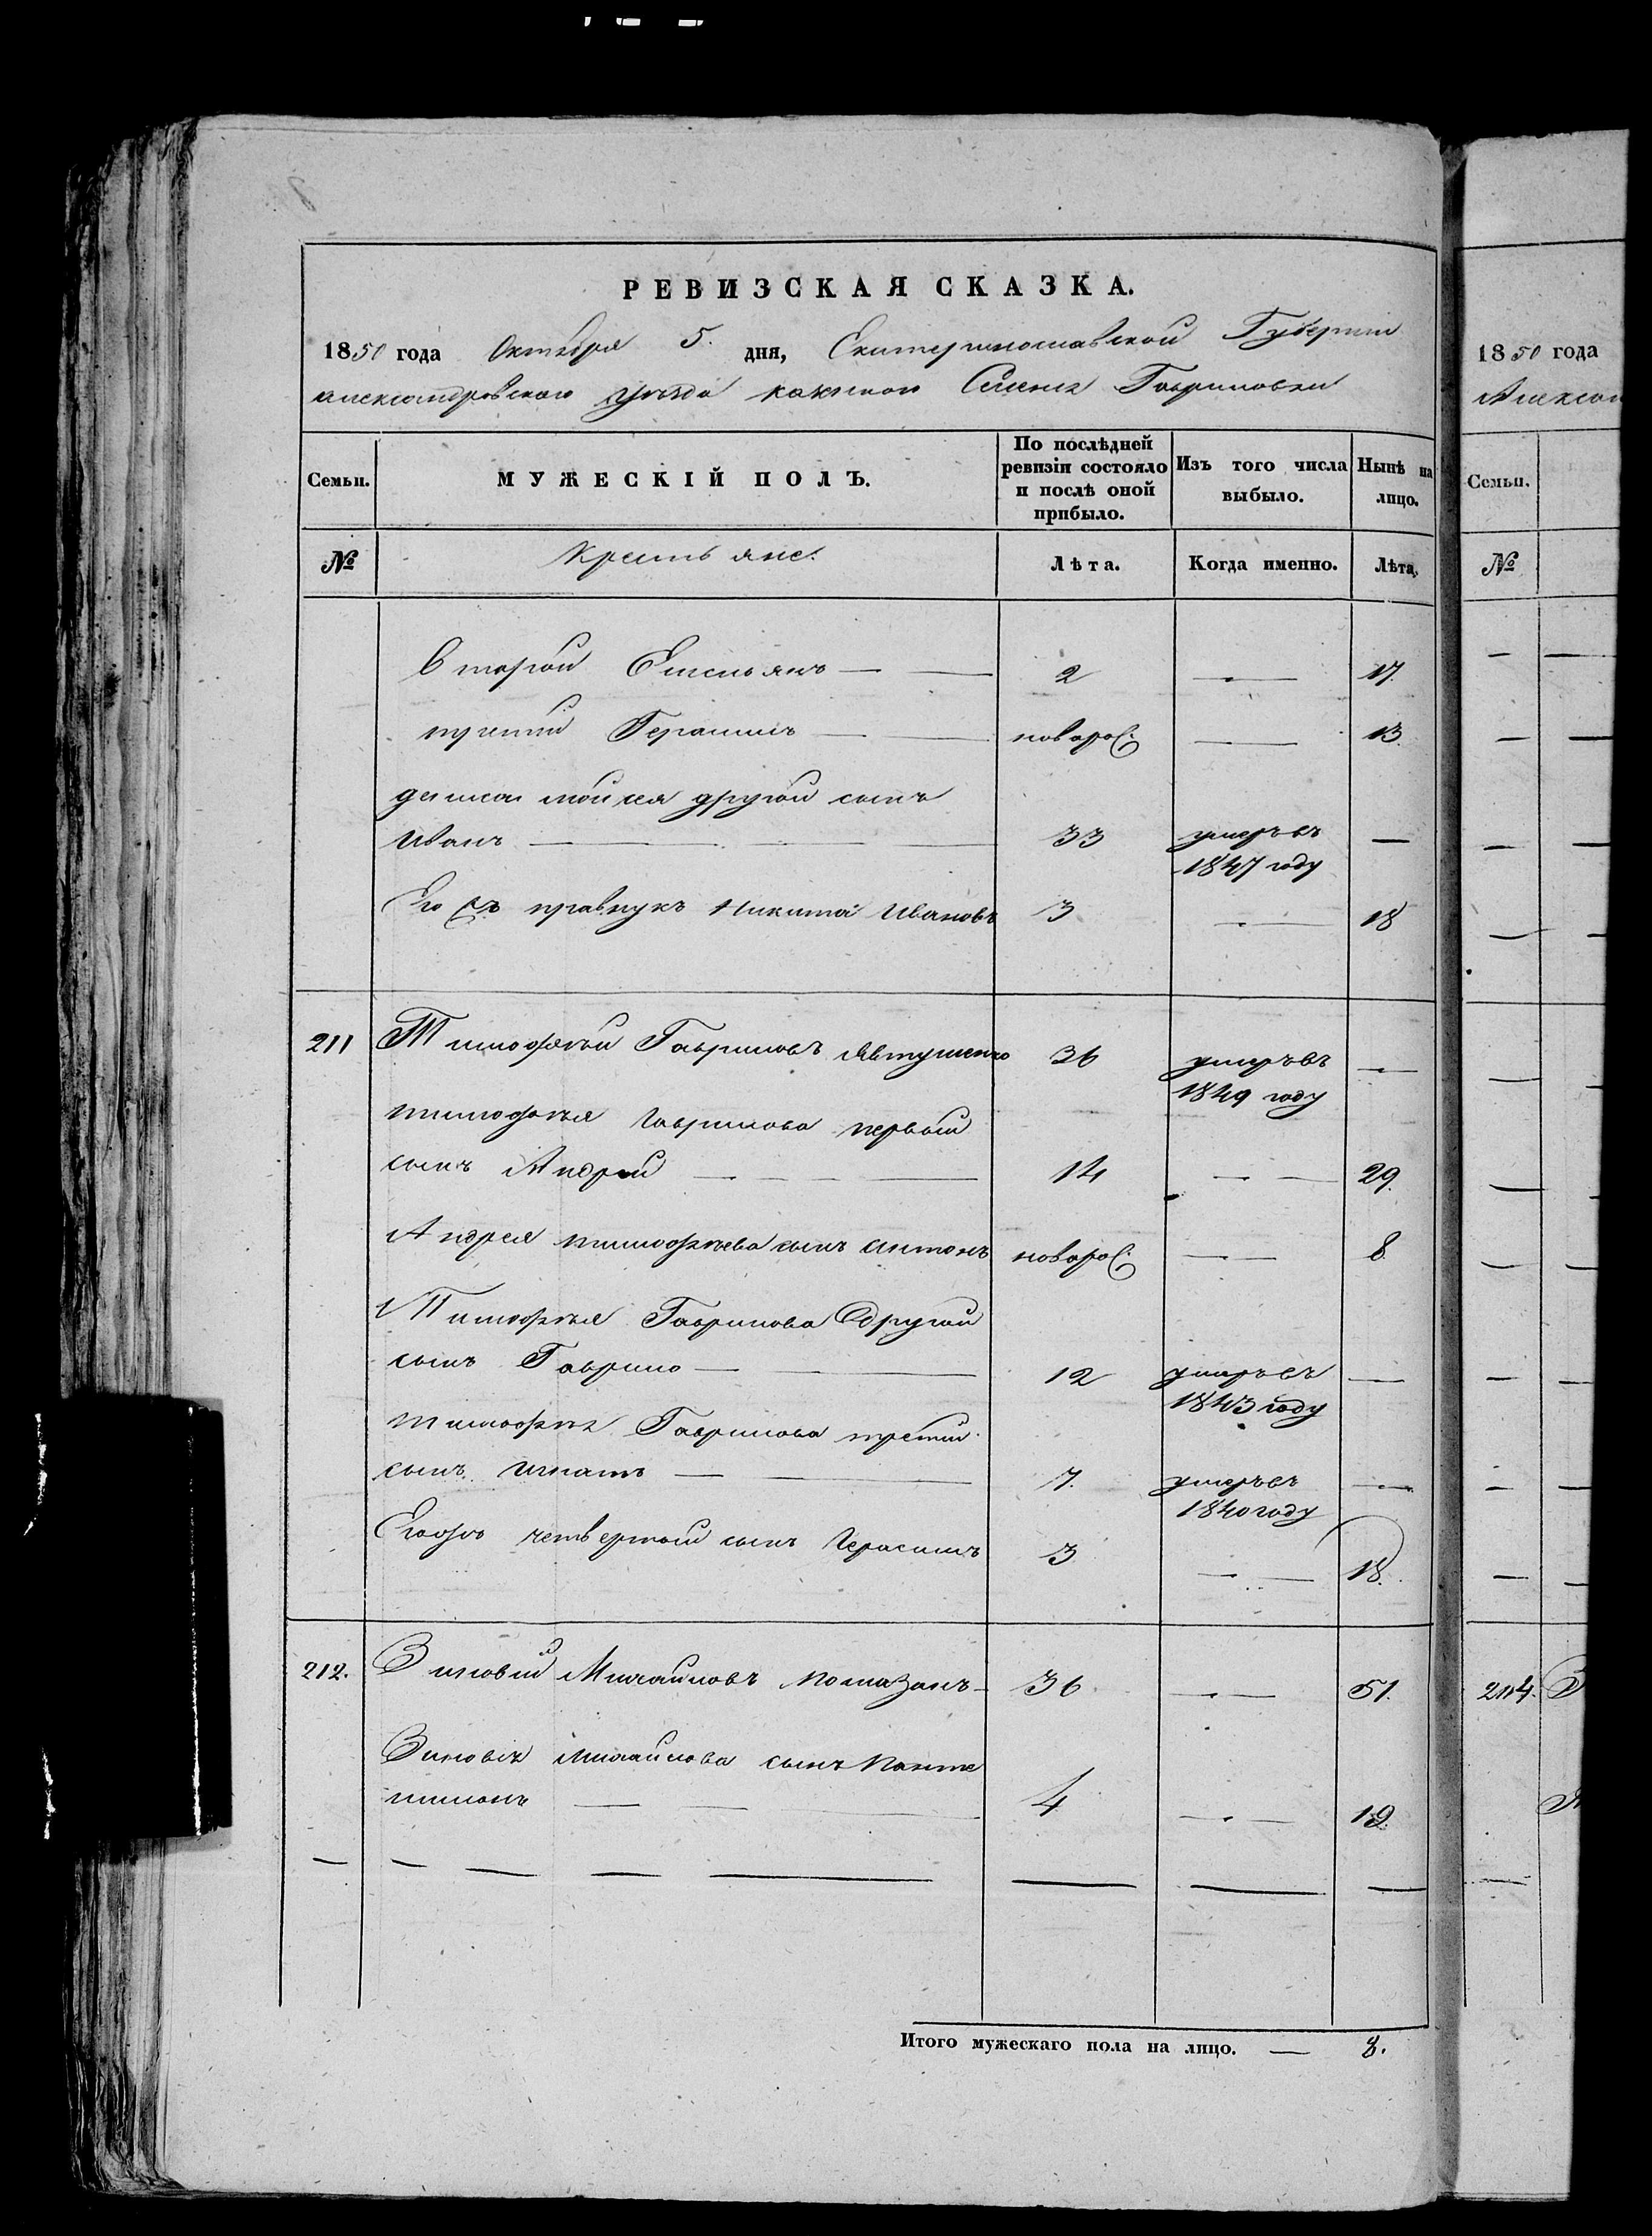 РЕВИЗСКАЯ СКАЗКА.
1850 года Октября 5. дня, Екатеринославской Губернии
александровского уезда Селения Гавриловки
Семьи. МУЖЕСКІЙ ПОЛЪ. По послѣдней ревизіи состояло и послѣ оной прибыло. Изъ того числа выбыло. Нынѣ на лицо.
№ Крестьяне. Лѣта. Когда именно. Лѣта.
второй Емельянъ — — 2 — 17.
третій Герасимъ — — новорос: — 13.
другой сынъ
Иванъ — — — 33 умеръ въ —
1847 году
Его правнукъ Никита Ивановъ 3 — 18
211 Тимофѣй Гавриловъ Явтушенко 36 умеръ въ —
1849 году
Тимофѣя Гаврилова первый
сынъ Андрей — — — 14 — — 29.
Андрея Тимофѣева сынъ Антонъ новорос: — 8.
Тимофѣя Гаврилова Другой
сынъ Гаврило — — 12 умеръ въ —
1843 году
Тимофѣя Гаврилова третій
сынъ Игнатъ — — 7. умеръ въ —
1840 году
Егожъ четвертый сынъ Герасимъ 3 — — 18.
212. Зиновій Михайловъ Помазанъ 36. — — 51.
Зиновія Михайлова сынъ Панте
лимонъ — — — 4 — — 19.
Итого мужескаго пола на лицо. — 8.
1850 года
Алексан
Семьи.
№
214.